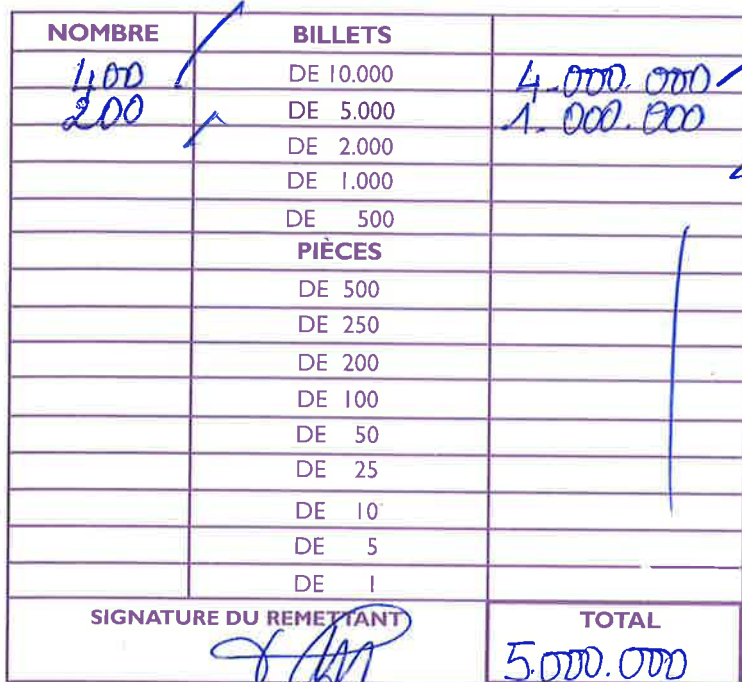 NOMBRE BILLETS
400 DE 10.000 4.000.000
200 DE 5.000 1.000.000
DE 2.000
DE 1.000
DE 500
PIÈCES
DE 500
DE 250
DE 200
DE 100
DE 50
DE 25
DE 10
DE 5
DE 1
SIGNATURE DU REMETTANT TOTAL
5.000.000